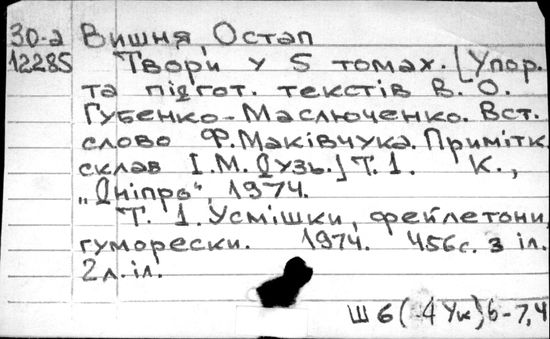 30-а Вишня, Остап
12285 Твори у 5 томах. [Упор.
та підгот. текстів В. О.
Губенко-Маслюченко. Вст.
слово Ф. Маківчука. Примітк.
склав І. М. Дузь.] Т. 1. К.,
„Дніпро", 1974.
Т. 1. Усмішки, фейлетони,
гуморески. 1974. 456с. з іл.
2л. іл.
Ш 6(4Ук)6-7,4